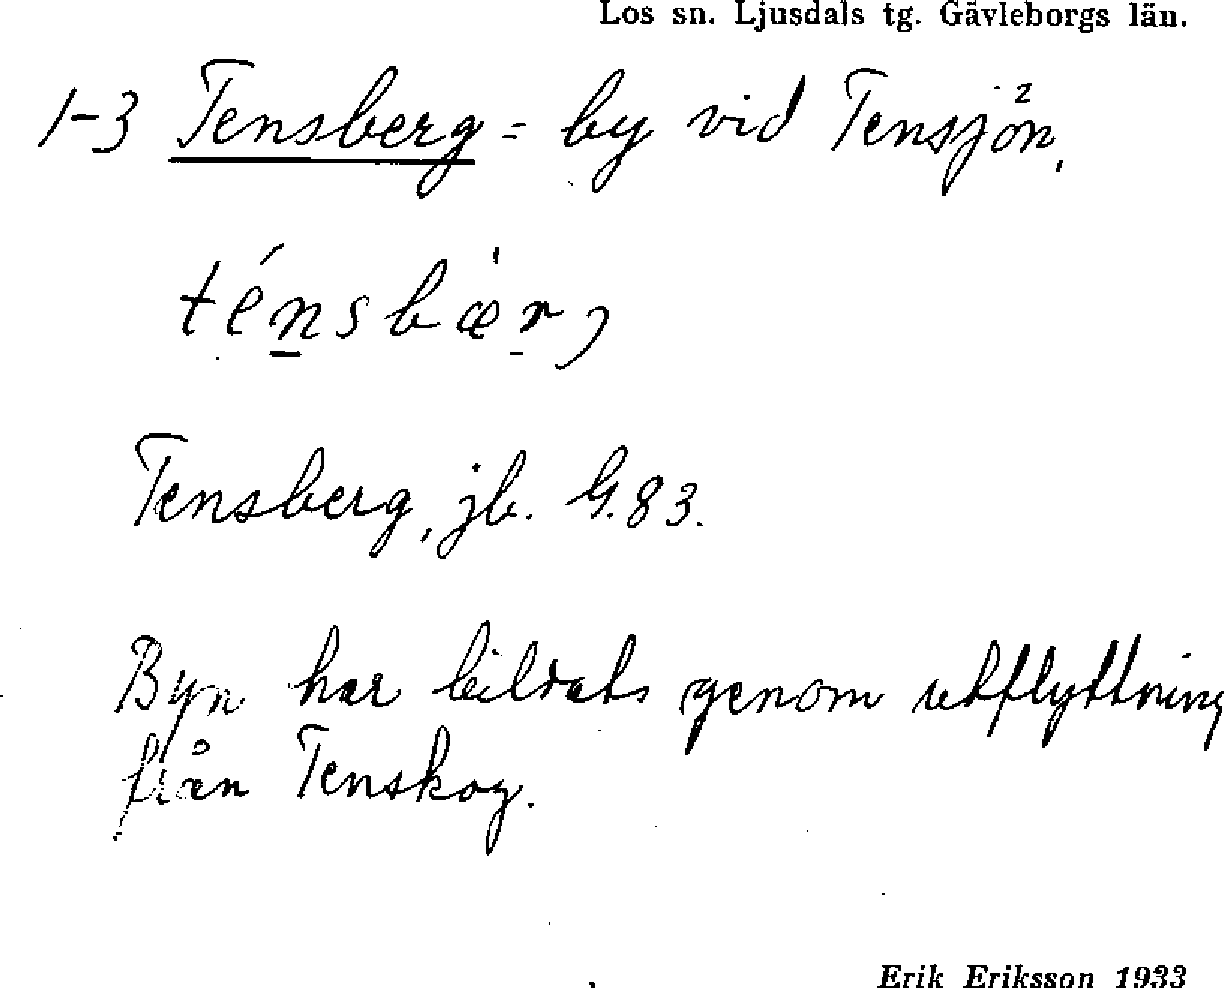 Los sn. Ljusdals tg. Gävleborgs län.
1-3 Tensberg = by vid Tensjön,²
ténsbær,
Tensberg, jb. G. 83.
Byn har bildats genom utflyttning
från Tenskog.
Erik Eriksson 1933